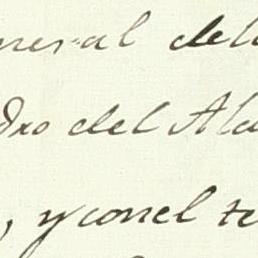 neral dela
dro del Ala
, y con el te